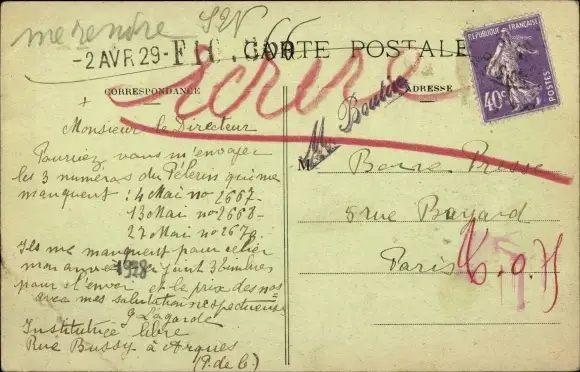 me rendre SEV
-2 AVR 29 - FIC. 566
CARTE POSTALE
RÉPUBLIQUE FRANÇAISE
40c
POSTES
Ecrire
CORRESPONDANCE
ADRESSE
Monsieur le Directeur
Pourriez vous m'envoyer
les 3 numéros du Pèlerin qui me
manquent : 4 Mai no 2667-
13 Mai no 2668-
27 Mai no 267
Ils me manquent pour relier
mon année 1928 joint 3 timbres
pour l'envoi et le prix des nos
avec mes salutations respectueuses
Lagarde
Institutrice libre
Rue Bussy à Arques
(P. de C.)
M Bonne Presse
5 rue Bayard
Paris